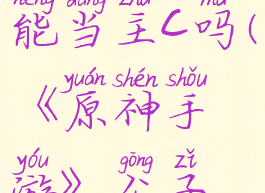 néng dāng zhǔ mɑ
能当主C吗(
yuán shén shǒu
《原神手
yóu gōng zǐ
游》公子